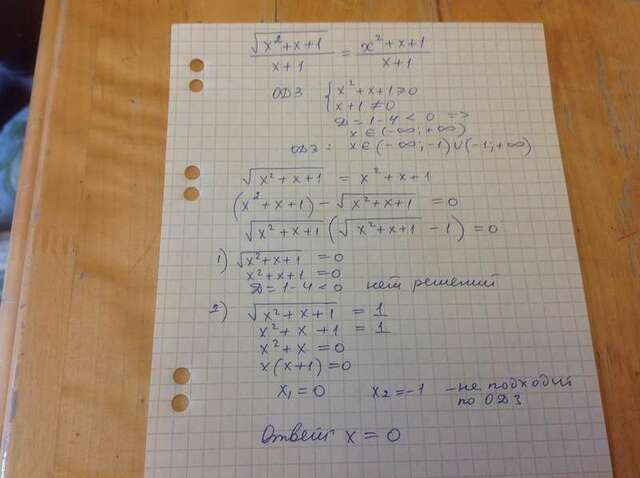 √(x²+x+1) / (x+1) = (x²+x+1) / (x+1)
ОДЗ { x²+x+1 ≥ 0
x+1 ≠ 0
D = 1-4 < 0 =>
x ∈ (-∞; +∞)
ОДЗ: x ∈ (-∞; -1) ∪ (-1; +∞)
√(x²+x+1) = x²+x+1
(x²+x+1) - √(x²+x+1) = 0
√(x²+x+1) (√(x²+x+1) - 1) = 0
1) √(x²+x+1) = 0
x²+x+1 = 0
D = 1-4 < 0 нет решений
2) √(x²+x+1) = 1
x²+x+1 = 1
x²+x = 0
x(x+1) = 0
x₁ = 0 x₂ = -1 - не подходит
по ОДЗ
Ответ x = 0